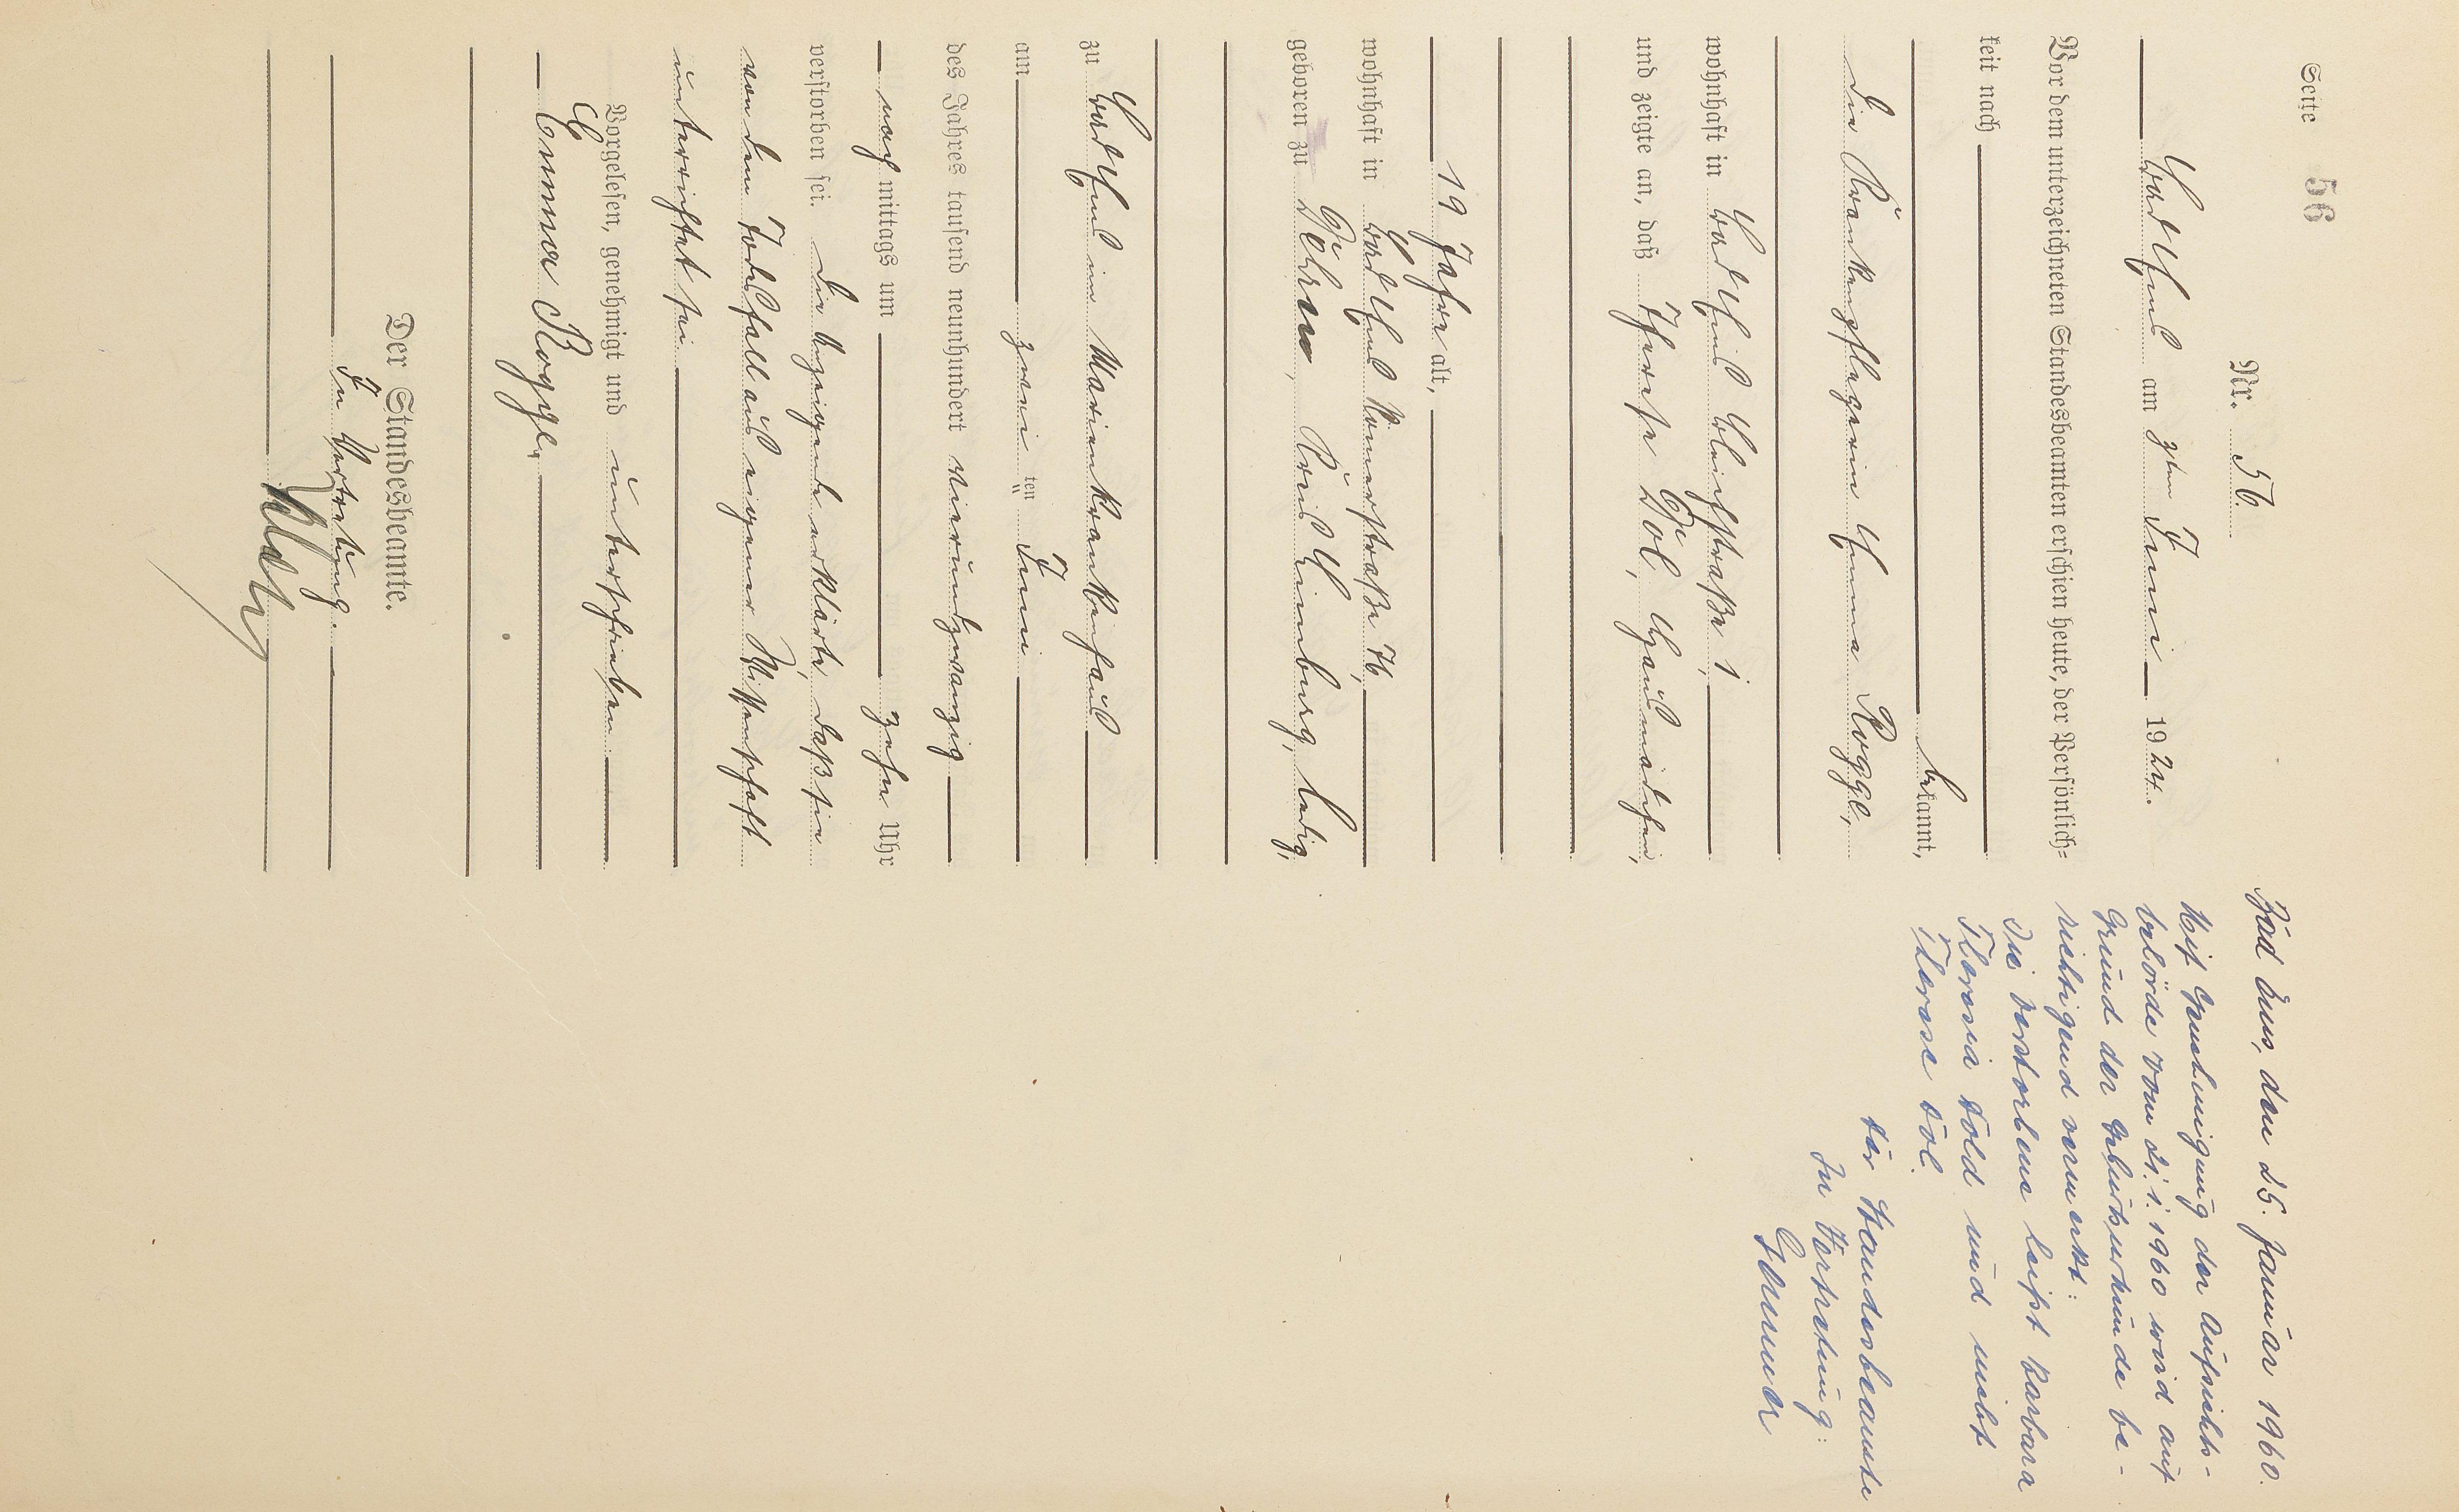 Seite 56
Nr. 56.
Bad Ems am 3ten Juni 1924.
Vor dem unterzeichneten Standesbeamten erschien heute, der Persönlich-
keit nach
bekannt,
die Krankenpflegerin Emma Roggl,
wohnhaft in Bad Ems Bleichstraße 1,
und zeigte an, daß Therese Döl, Hausmädchen,
19 Jahre alt,
wohnhaft in Bad Ems Römerstraße 76,
geboren zu Döhren, Kreis, ledig,
zu Bad Ems im Marienkrankenhaus
am zwei ten Juni
des Jahres tausend neunhundert vierundzwanzig
nach mittags um zehn Uhr
verstorben sei. Die Anzeigende erklärte, daß sie
von dem Todesfall aus eigener Wissenschaft
unterrichtet sei.
Vorgelesen, genehmigt und unterschrieben
Emma Roggl,
Der Standesbeamte.
In Vertretung.
Bad Ems, den 25. Januar 1960.
Mit Genehmigung der Aufsichts-
behörde vom 21.1.1960 wird auf
Grund der Geburtsurkunde be-
richtigend vermerkt:
Die Verstorbene heißt Barbara
Theresia Döld und nicht
Therese Döl.
Der Standesbeamte
In Vertretung: